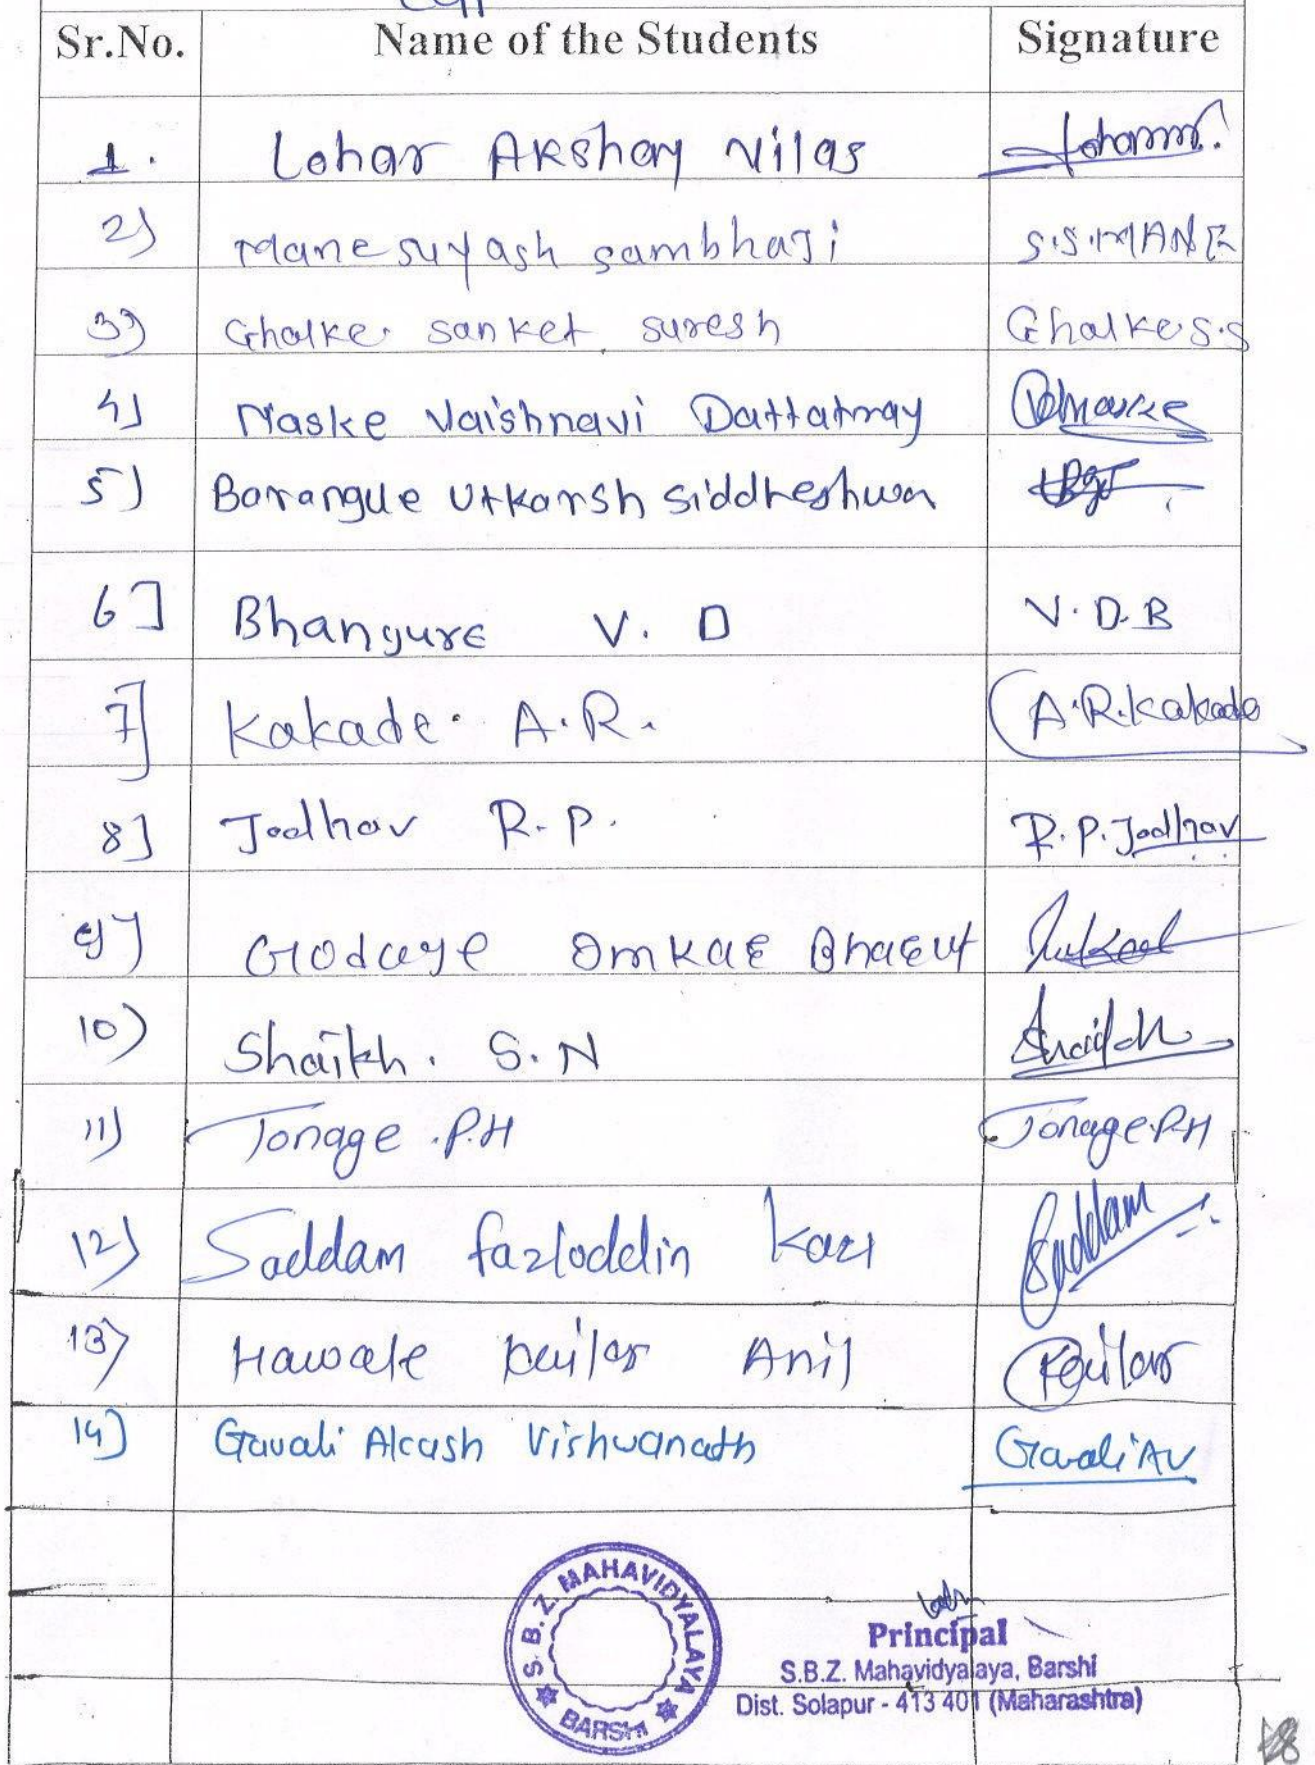 Sr.No. Name of the Students Signature
1. Lohar Akshay Vilas
2) Mane suyash sambhaji S.S.MANE
3) Ghalke sanket suresh Ghalke S.S
4) Maske Vaishnavi Dattatray
5) Barangule Utkarsh Siddheshwa
6] Bhangure V. D V. D. B
7] Kakade. A.R. A.R.Kakade
8] Jadhav R.P. R.P.Jadhav
9] Omkar Bharut
10) Shaikh. S.N Shaikh
11) Tonage .P.H Tonage.P.H
12) Saddam fazloddin Kazi Saddam
13) Anil
14) Gavali Akash Vishwanath Gavali AV
S. B. Z. MAHAVIDYALAYA
BARSHI
Principal
S.B.Z. Mahavidyalaya, Barshi
Dist. Solapur - 413 401 (Maharashtra)